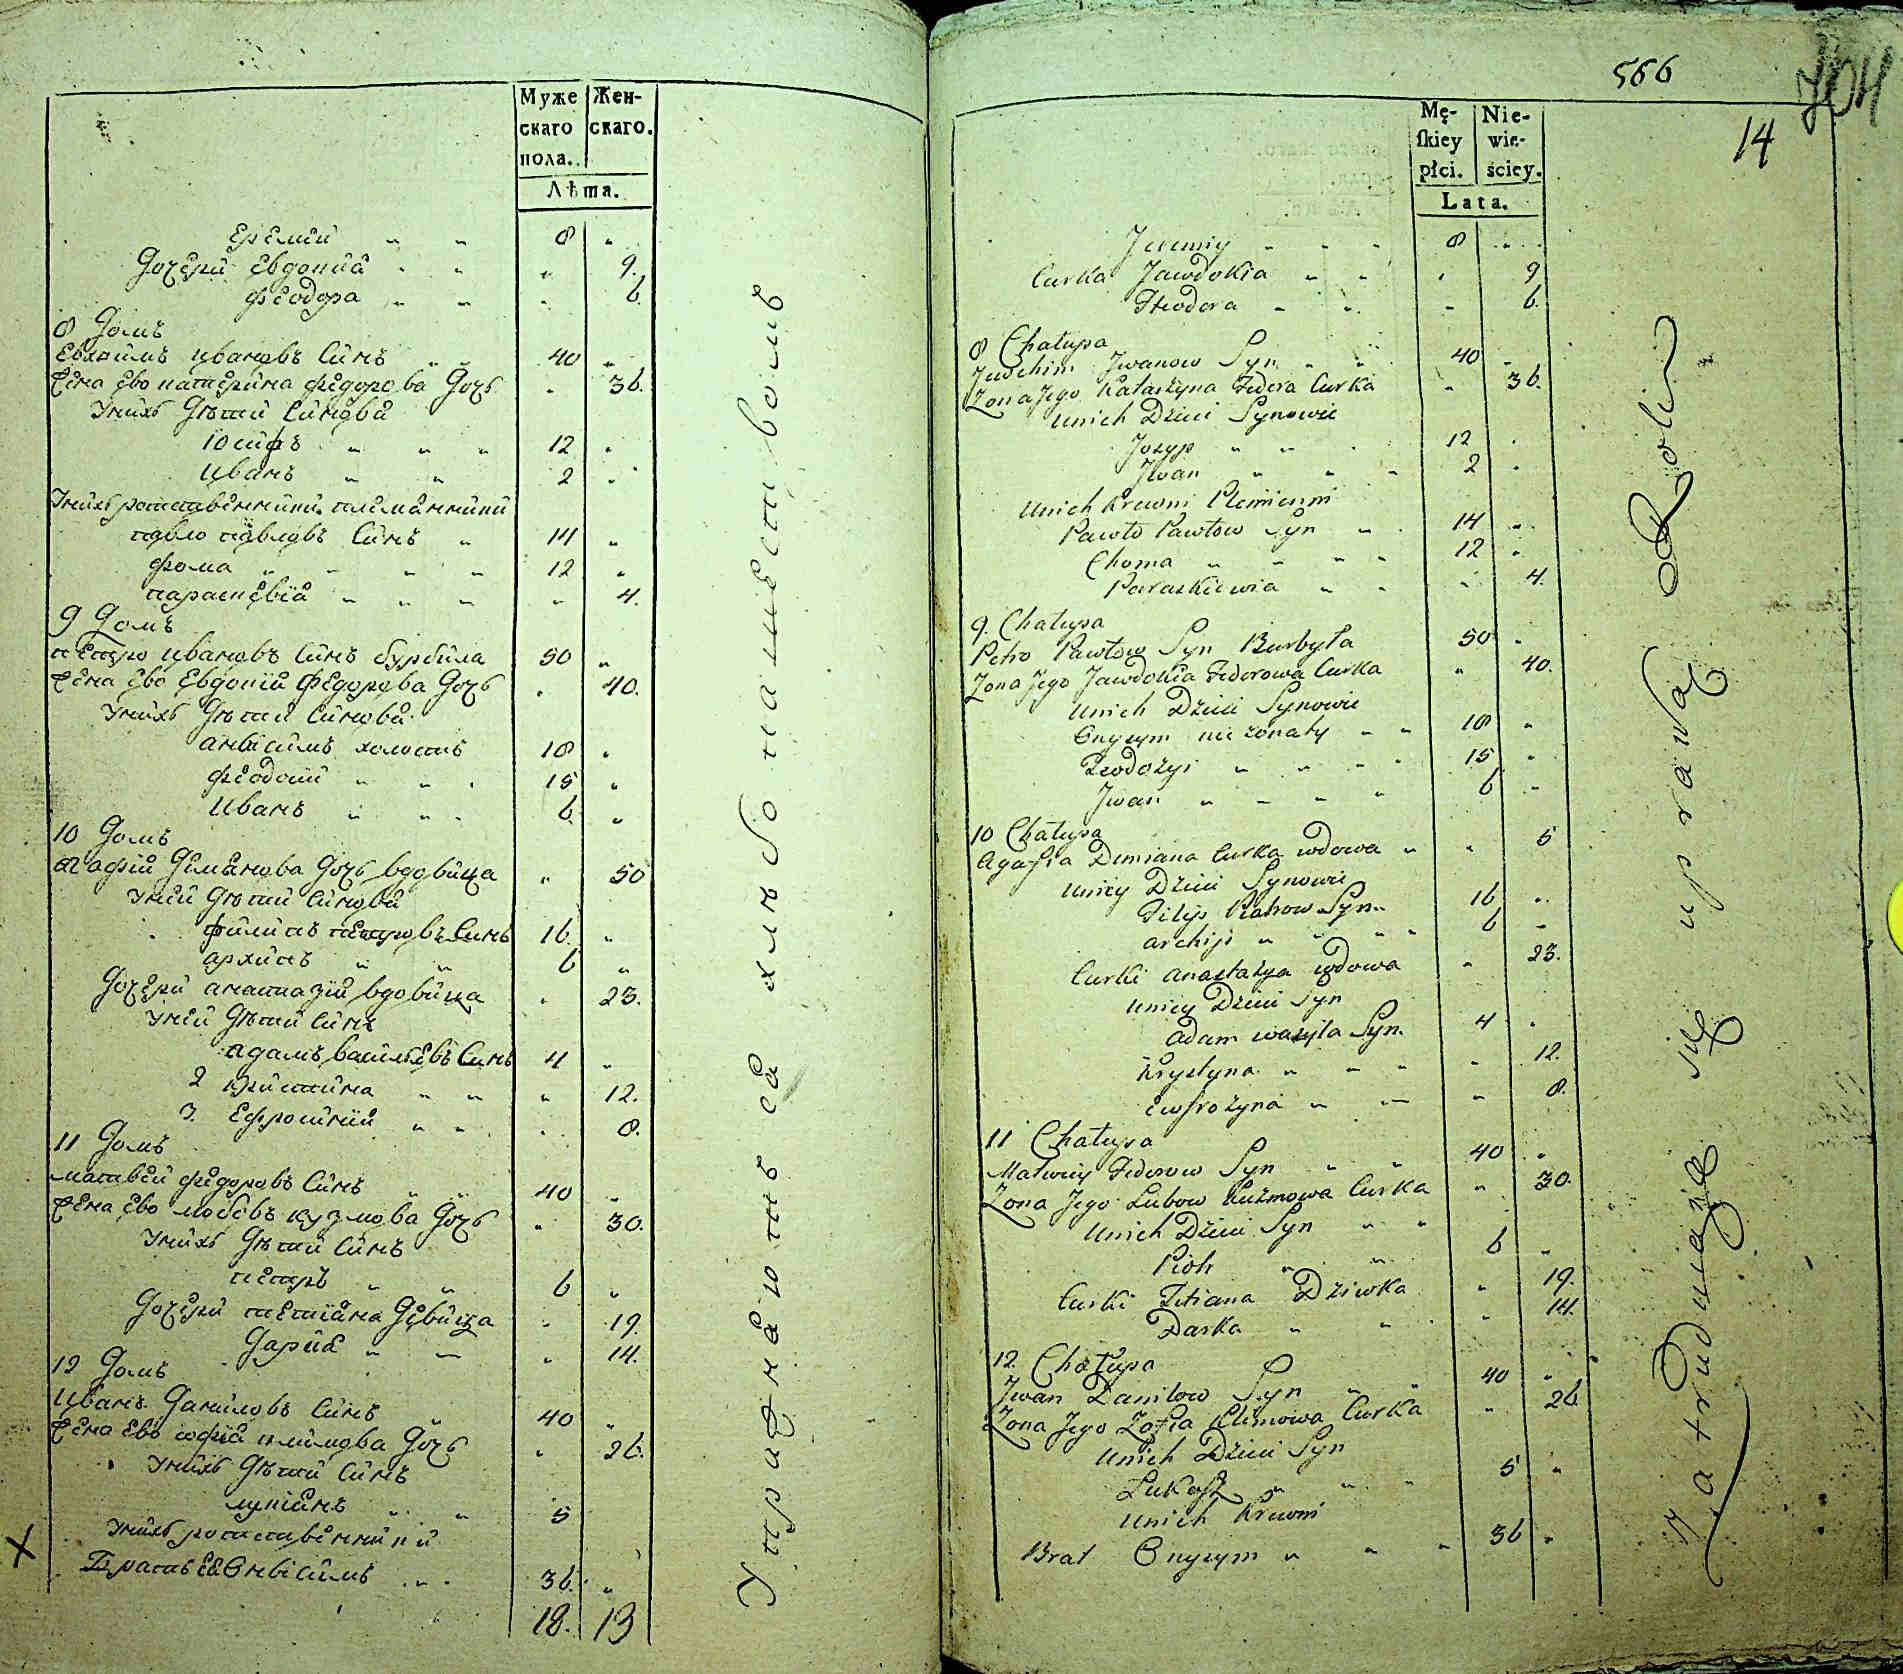 Муже
скаго
пола.
Жен-
скаго.
Лѣта.
Еремѣй " " 8 "
Дочери Евдокиа " " " 9.
Феодора " " " 6.
8 Домъ
Евхимъ Ивановъ Синъ " " 40 "
Жена ево Катерина Федорова Дочь " 36.
Унихъ Дѣтий Синови
Іосифъ " " " 12 "
Иванъ " " 2 "
Унихъ родственники племянники
Павло Павловъ Синъ " 14 "
Фома " " " " 12 "
Параскевіа " " " " 4.
9 Домъ
Петро Ивановъ Синъ Бурбила 50 "
Жена ево Евдокіи Федорова Дочь " 40.
Унихъ Дѣтий Синови
Анисимъ холостъ 18 "
Феодосий " " 15 "
Иванъ " " " 6. "
10 Домъ
Агафіи Димянова Дочь вдовица " 50
Уний Дѣтий Синови
Филипъ Петровъ Синъ 16. "
Архипъ " " 6 "
Дочери Анастазіи вдовица " 23.
Уний Дѣтий Синъ
Адамъ Василевъ Синъ 4 "
2 Кристина " " " 12.
3. Ефросинии " " " 8.
11 Домъ
Матвѣй Федоровъ Синъ " " 40 "
Жена ево Любовъ Кузмова Дочь " 30.
Унихъ Дѣтий Синъ
Петръ " " 6 "
Дочери Тетіана Дѣвица " 19.
Дария " " " 14.
12 Домъ
Иванъ Даниловъ Синъ " 40 "
Жена ево Софіа Климова Дочь " 26.
Унихъ Дѣтий Синъ
Лукіанъ " " 5
Унихъ родственники
Братъ Ея Онисимъ " " 36. "
18. 13
Упражняются хлѣбопашествомъ
566
704
14
Mę-
skiey
płci.
Nie-
wie-
ściey.
Lata.
Jeremiy " " " 8 "
Curka Jawdokia " " " 9
Theodora " " " 6.
8 Chałupa
Juchim Jwanow Syn " " 40 "
Zona Jego Katarżyna Fedora Curka " 36.
Unich Dżieci Synowie
Jozyp " " 12 "
Jwan " " " 2 "
Unich Krewni Plemienni
Pawło Pawłow Syn " 14 "
Choma " " " " 12 "
Paraskiewia " " " 4.
9. Chałupa
Petro Pawłow Syn Burbyła 50 "
Zona Jego Jawdokia Fedorowa Curka " 40.
Unich Dżieci Synowie
Onyzym nie żonaty " " 18 "
Teodozyi " " " " 15 "
Jwan " " " " 6 "
10 Chałupa
Agafia Demiana Curka wdowa " " 5
Uniey Dżieci Synowie
Filip Piotrow Syn 16 "
Archip " " " " 6 "
Curki Anastazya wdowa " 23.
Uniey Dżieci Syn
Adam Wasyla Syn. 4 "
Krystyna " " " " 12.
Ewfrożyna " " " 8.
11 Chałupa
Matwiey Fedorow Syn " " 40 "
Zona Jego Lubow Kużmowa Curka " 30.
Unich Dżieci Syn " "
Piotr " " 6 "
Curki Tetiana Dżiwka " 19.
Darka " " " 14.
12 Chałupa
Jwan Daniłow Syn " " 40 "
Zona Jego Zofia Klimowa Curka " 26
Unich Dżieci Syn
Lukasz " " " 5 "
Unich Krewni
Brat Onyzym " " " 36 "
Zatrudniaią się uprawą Roli